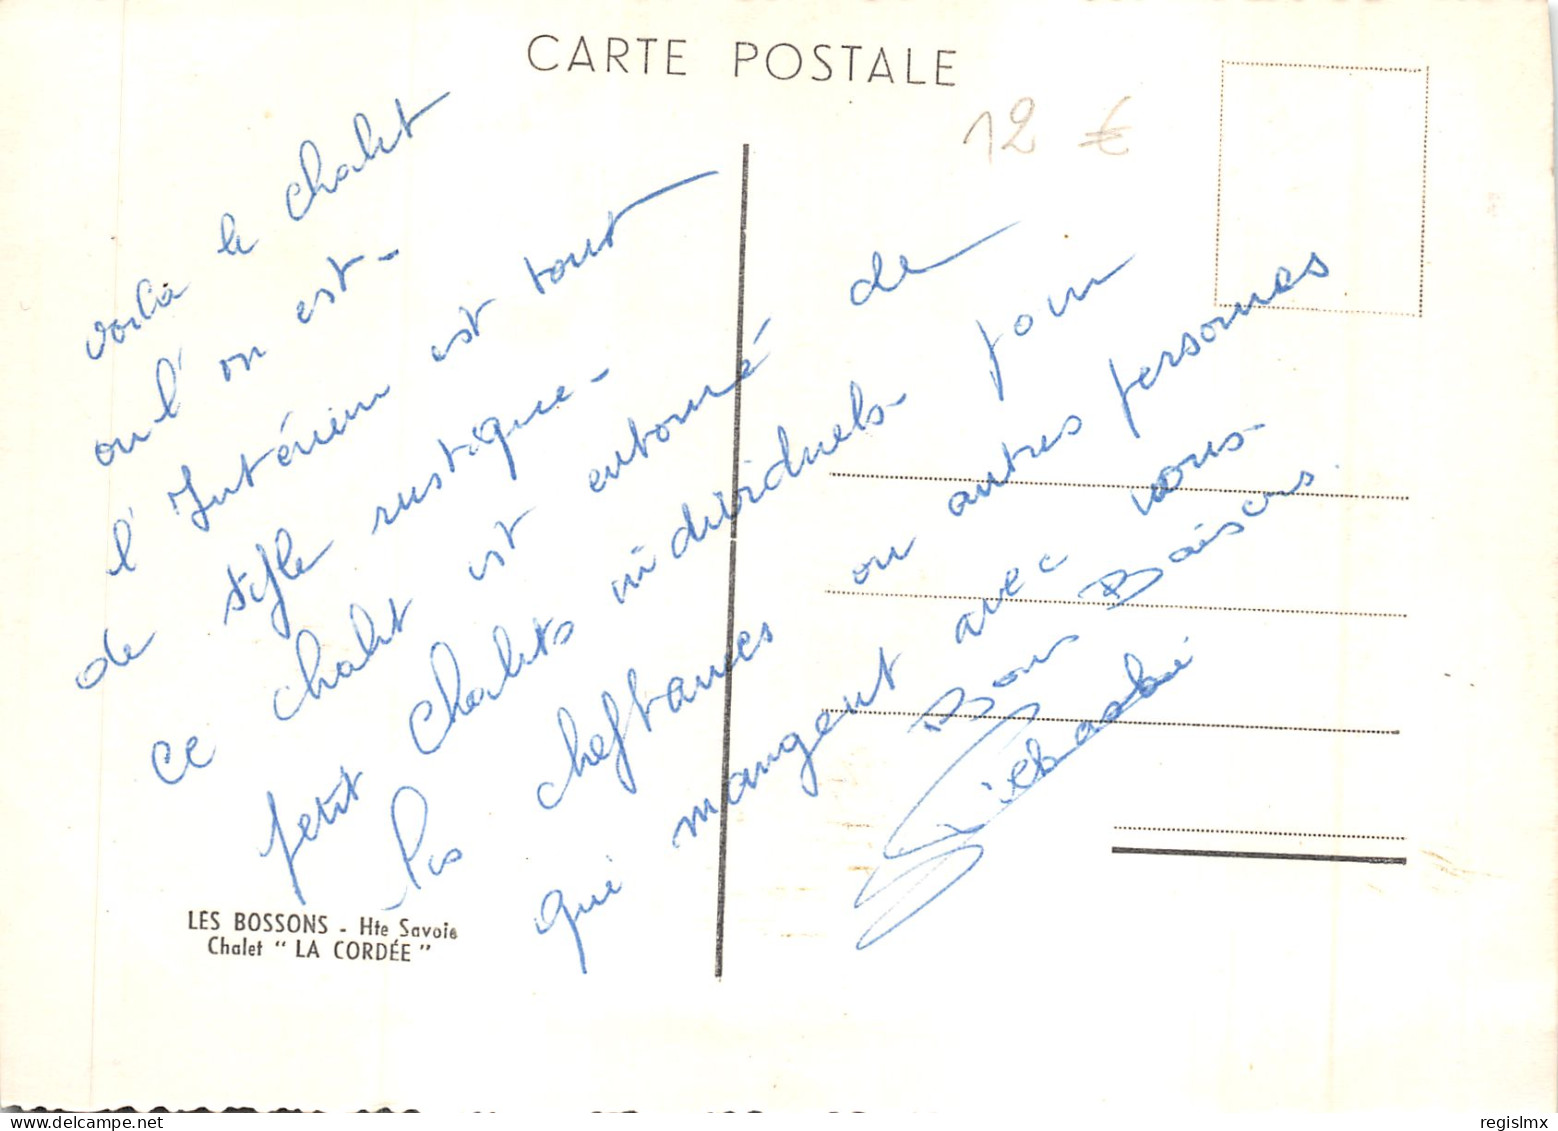 CARTE POSTALE
12 €
voila le chalet
ou l'on est-
l'Intérieur est tout
de style rustique-
ce chalet est entouré de
petit chalets individuels- pour
les cheftaines ou autres personnes
qui mangent avec nous-
Bons Baisers.
LES BOSSONS - Hte Savoie
Chalet " LA CORDÉE "
regislmx